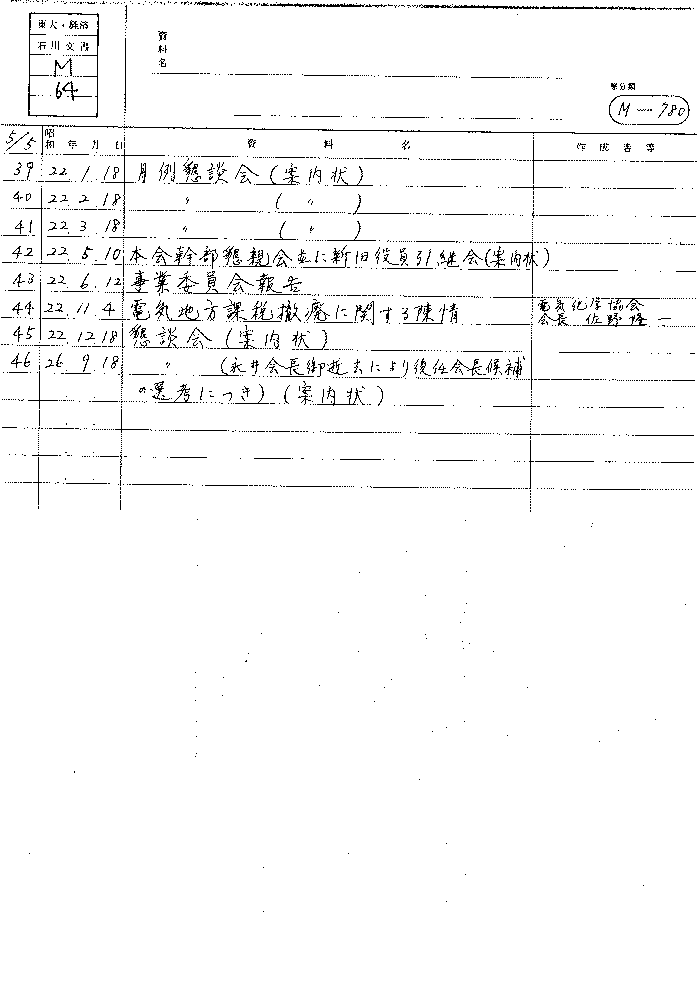 東大・経済
石川文書
M
64
資料名
原分類
M-780
5/5 昭和 年 月 日 資 料 名 作成者等
39 22 1 18 月例懇談会(案内状)
40 22 2 18 〃 (〃)
41 22 3 18 〃 (〃)
42 22 5 10 本会幹部懇親会並に新旧役員引継会(案内状)
43 22 6 12 事業委員会報告
44 22 11 4 電気地方課税撤廃に関する陳情 電気化学協会
会長 佐野隆一
45 22 12 18 懇談会(案内状)
46 26 9 18 〃 (永井会長御逝去により後任会長候補
の選考につき)(案内状)